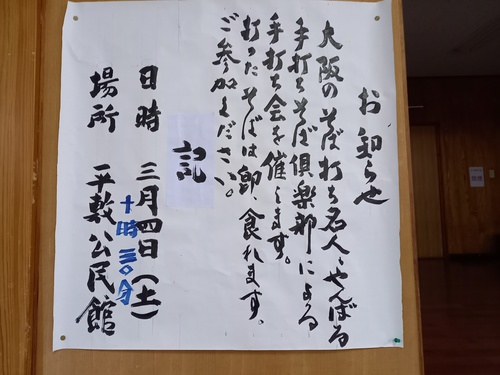 お知らせ
大阪のそば打ち名人、やんばる
手打ちそば倶楽部による
手打ち会を催します。
打ったそばは即、食れます。
ご参加ください。
記
日時 三月四日(土)
十時三〇分
場所 平敷公民館